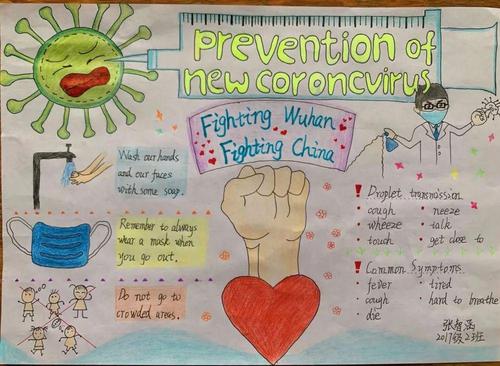 prevention of
new coroncvirus
Fighting Wuhan
Fighting China
Wash our hands
and our faces
with some soap.
Remember to always
wear a mask when
you go out.
Do not go to
crowded areas.
! Droplet transmission
• cough • neeze
• wheeze • talk
• touch • get close to
! Common Symptoms
• fever • tired
• cough • hard to breathe
• die
张智涵
2017级2班